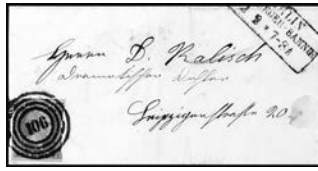 LIN
9 * 7-8 A
Herrn D. Kalisch
Dramatischer Dichter
Leipzigerstraße 20
106